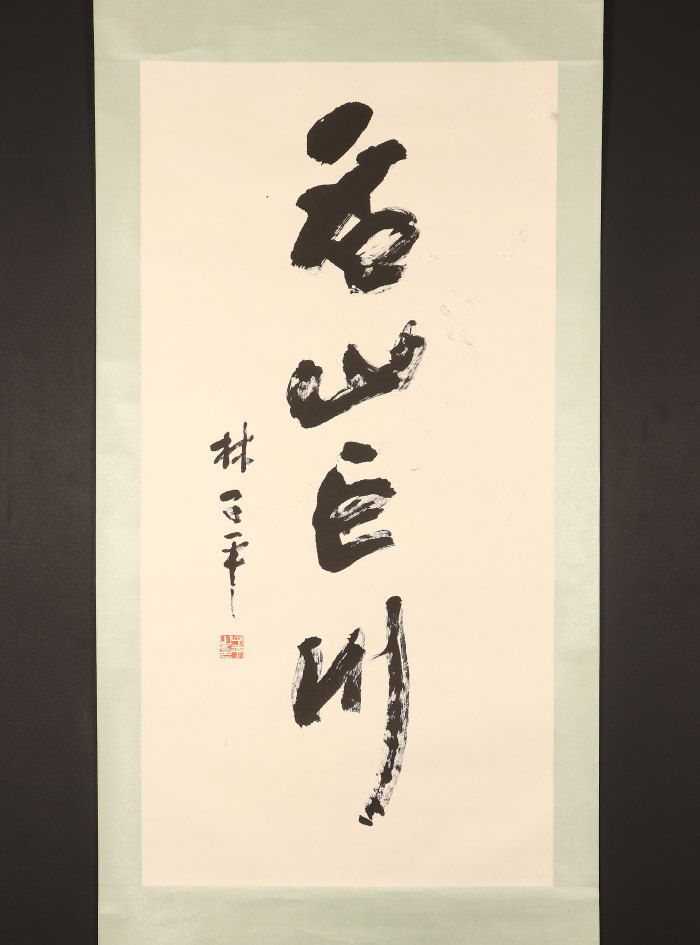 名山巨川
林 平